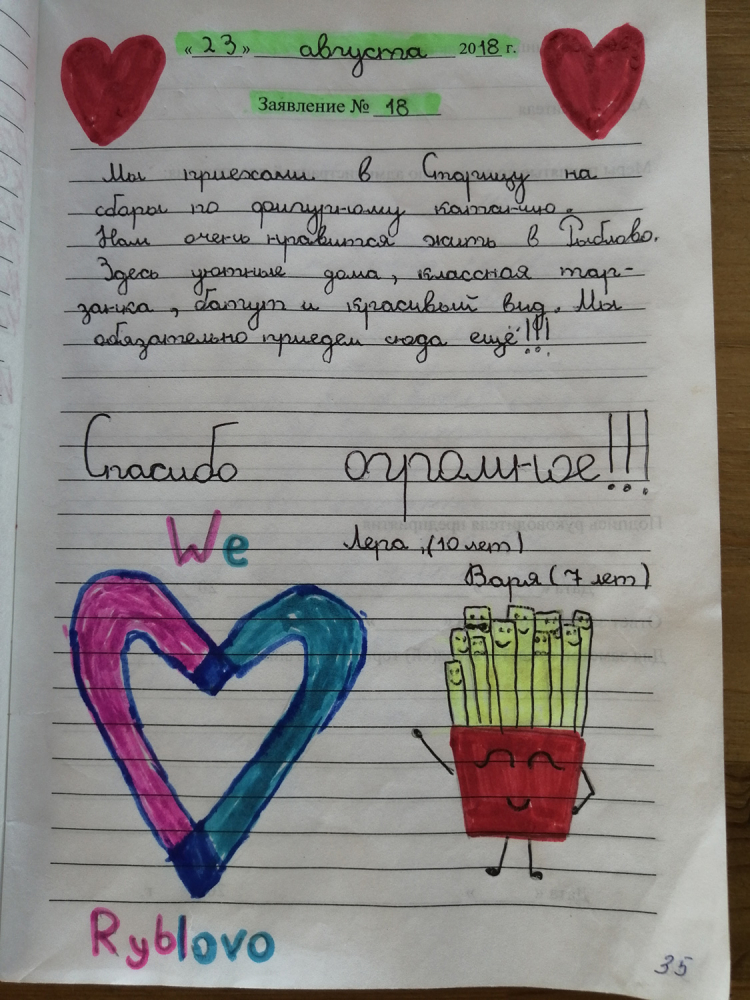 « 23 » августа 2018 г.
Заявление № 18
Мы приехали в Старицу на
сборы по фигурному катанию.
Нам очень нравится жить в Рыблово.
Здесь уютные дома, классная тар-
занка, батут и красивый вид. Мы
обязательно приедем сюда ещё!!!
Спасибо огромное!!!
Лера, (10 лет)
Варя (7 лет)
We
Ryblovo
35